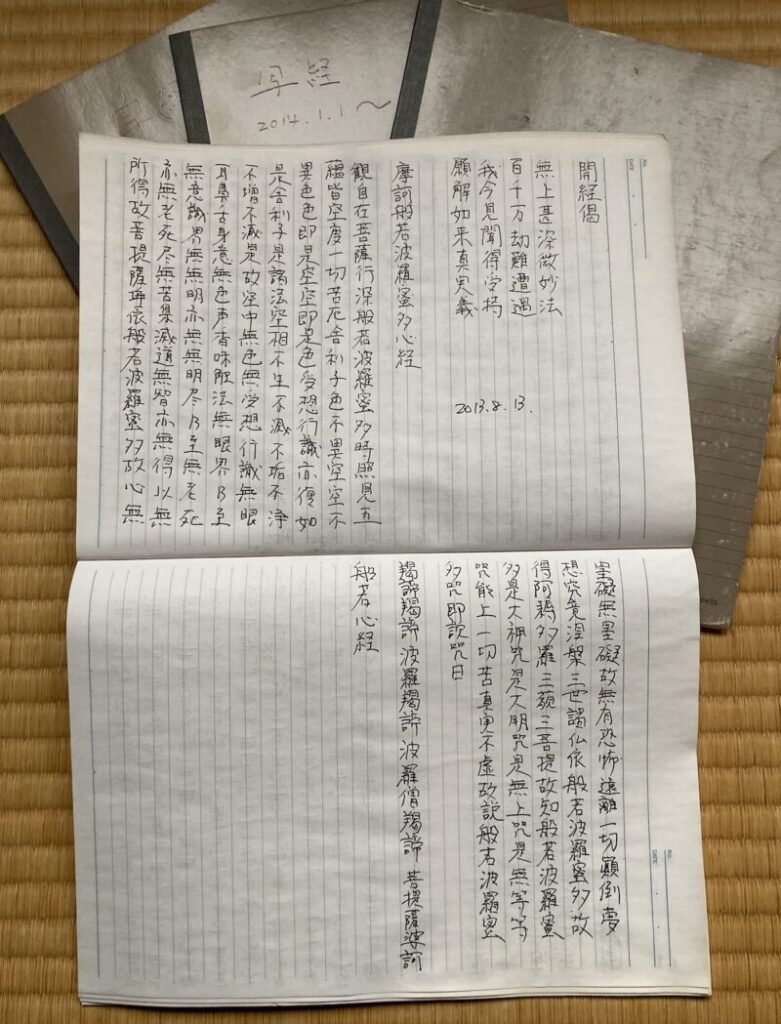 写経
2014.1.1〜
No.
DATE
開経偈
無上甚深微妙法
百千万劫難遭遇
我今見聞得受持
願解如来真実義
2013.8.13.
摩訶般若波羅蜜多心経
観自在菩薩行深般若波羅蜜多時照見五
蘊皆空度一切苦厄舎利子色不異空空不
異色色即是空空即是色受想行識亦復如
是舎利子是諸法空相不生不滅不垢不浄
不増不減是故空中無色無受想行識無眼
耳鼻舌身意無色声香味触法無眼界乃至
無意識界無無明亦無無明尽乃至無老死
亦無老死尽無苦集滅道無智亦無得以無
所得故菩提薩埵依般若波羅蜜多故心無
No.
DATE
罣礙無罣礙故無有恐怖遠離一切顛倒夢
想究竟涅槃三世諸仏依般若波羅蜜多故
得阿耨多羅三藐三菩提故知般若波羅蜜
多是大神咒是大明咒是無上咒是無等等
咒能上一切苦真実不虚故説般若波羅蜜
多咒即説咒曰
羯諦羯諦 波羅羯諦 波羅僧羯諦 菩提薩婆訶
般若心経